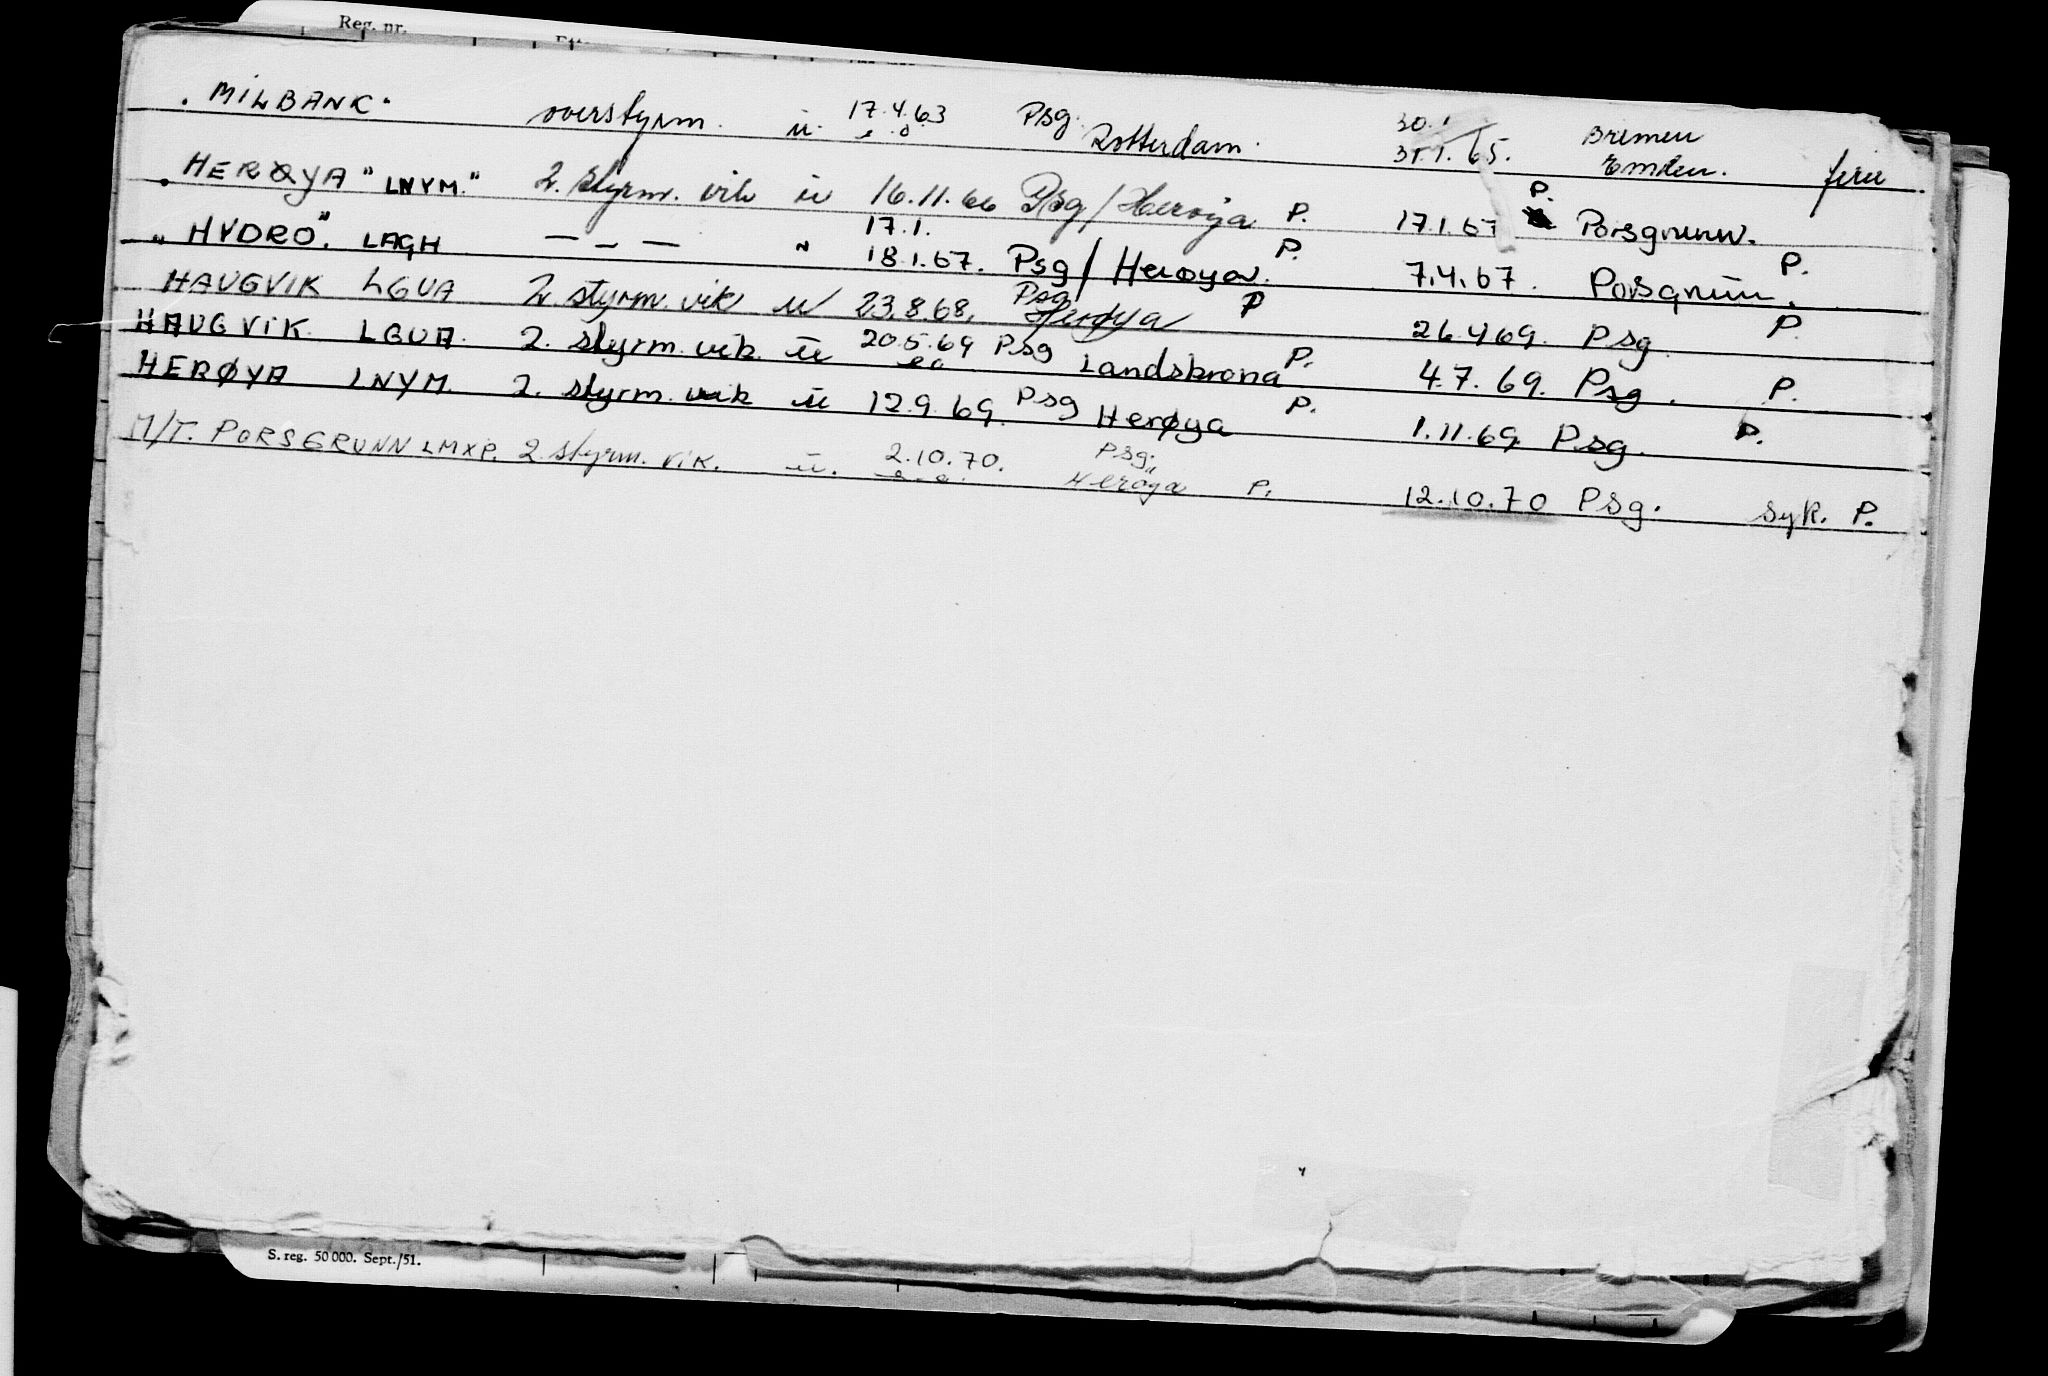 Reg. nr.
"MILBANK" overstyrm. u. 17.4.63 Psg. Rotterdam. 30.1 31.1.65. Bremen Emden. ferie
"HERØYA" LNYM." 2. styrm. vik u 16.11.66 Psg/Herøya P. 17.1.67 P. Porsgrunn.
"HYDRO". LAGH — – — " 17.1. 18.1.67. Psg/Herøya. P. 7.4.67. Porsgrunn. P.
HAUGVIK LGUA 2 styrm. vik u 23.8.68. Psg Herøya P 26.4.69. Psg P.
HAUGVIK LGUA. 2. styrm. vik. u 20.5.69 Psg Landskrona P. 4.7.69. Psg. P.
HERØYA LNYM. 2. styrm. vik u 12.9.69. Psg Herøya P. 1.11.69. Psg. P.
M/T. PORSGRUNN LMXP. 2. styrm. vik. u. 2.10.70. Psg. Herøya P. 12.10.70 Psg. syk. P.
S. reg. 50 000. Sept./51.